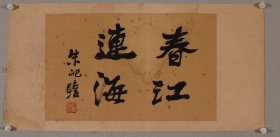 春江
連海
朱屺瞻